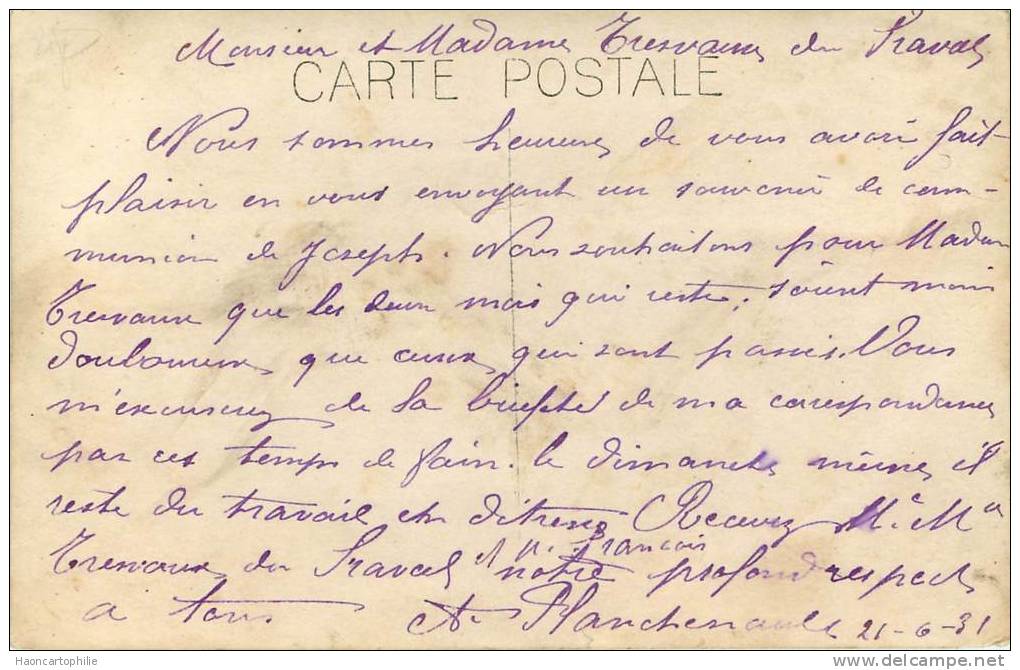 Monsieur et Madame Tresvaux du Fraval
CARTE POSTALE
Nous sommes heureux de vous avoir fait
plaisir en vous envoyant un souvenir de com-
munion de Joseph. Nous souhaitons pour Madame
Tresvaux que les deux mois qui reste, soient moins
douloureux que ceux qui sont passés. Vous
m'excuserez de la briefté de ma corespondance
par ces temps de foin. le dimanche même il
reste du travail et
Recevez Mr Me
Tresvaux du Fraval et M. François
notre profond respect
a tous A. Planchenault 21-6-31
Haoncartophilie
www.delcampe.net